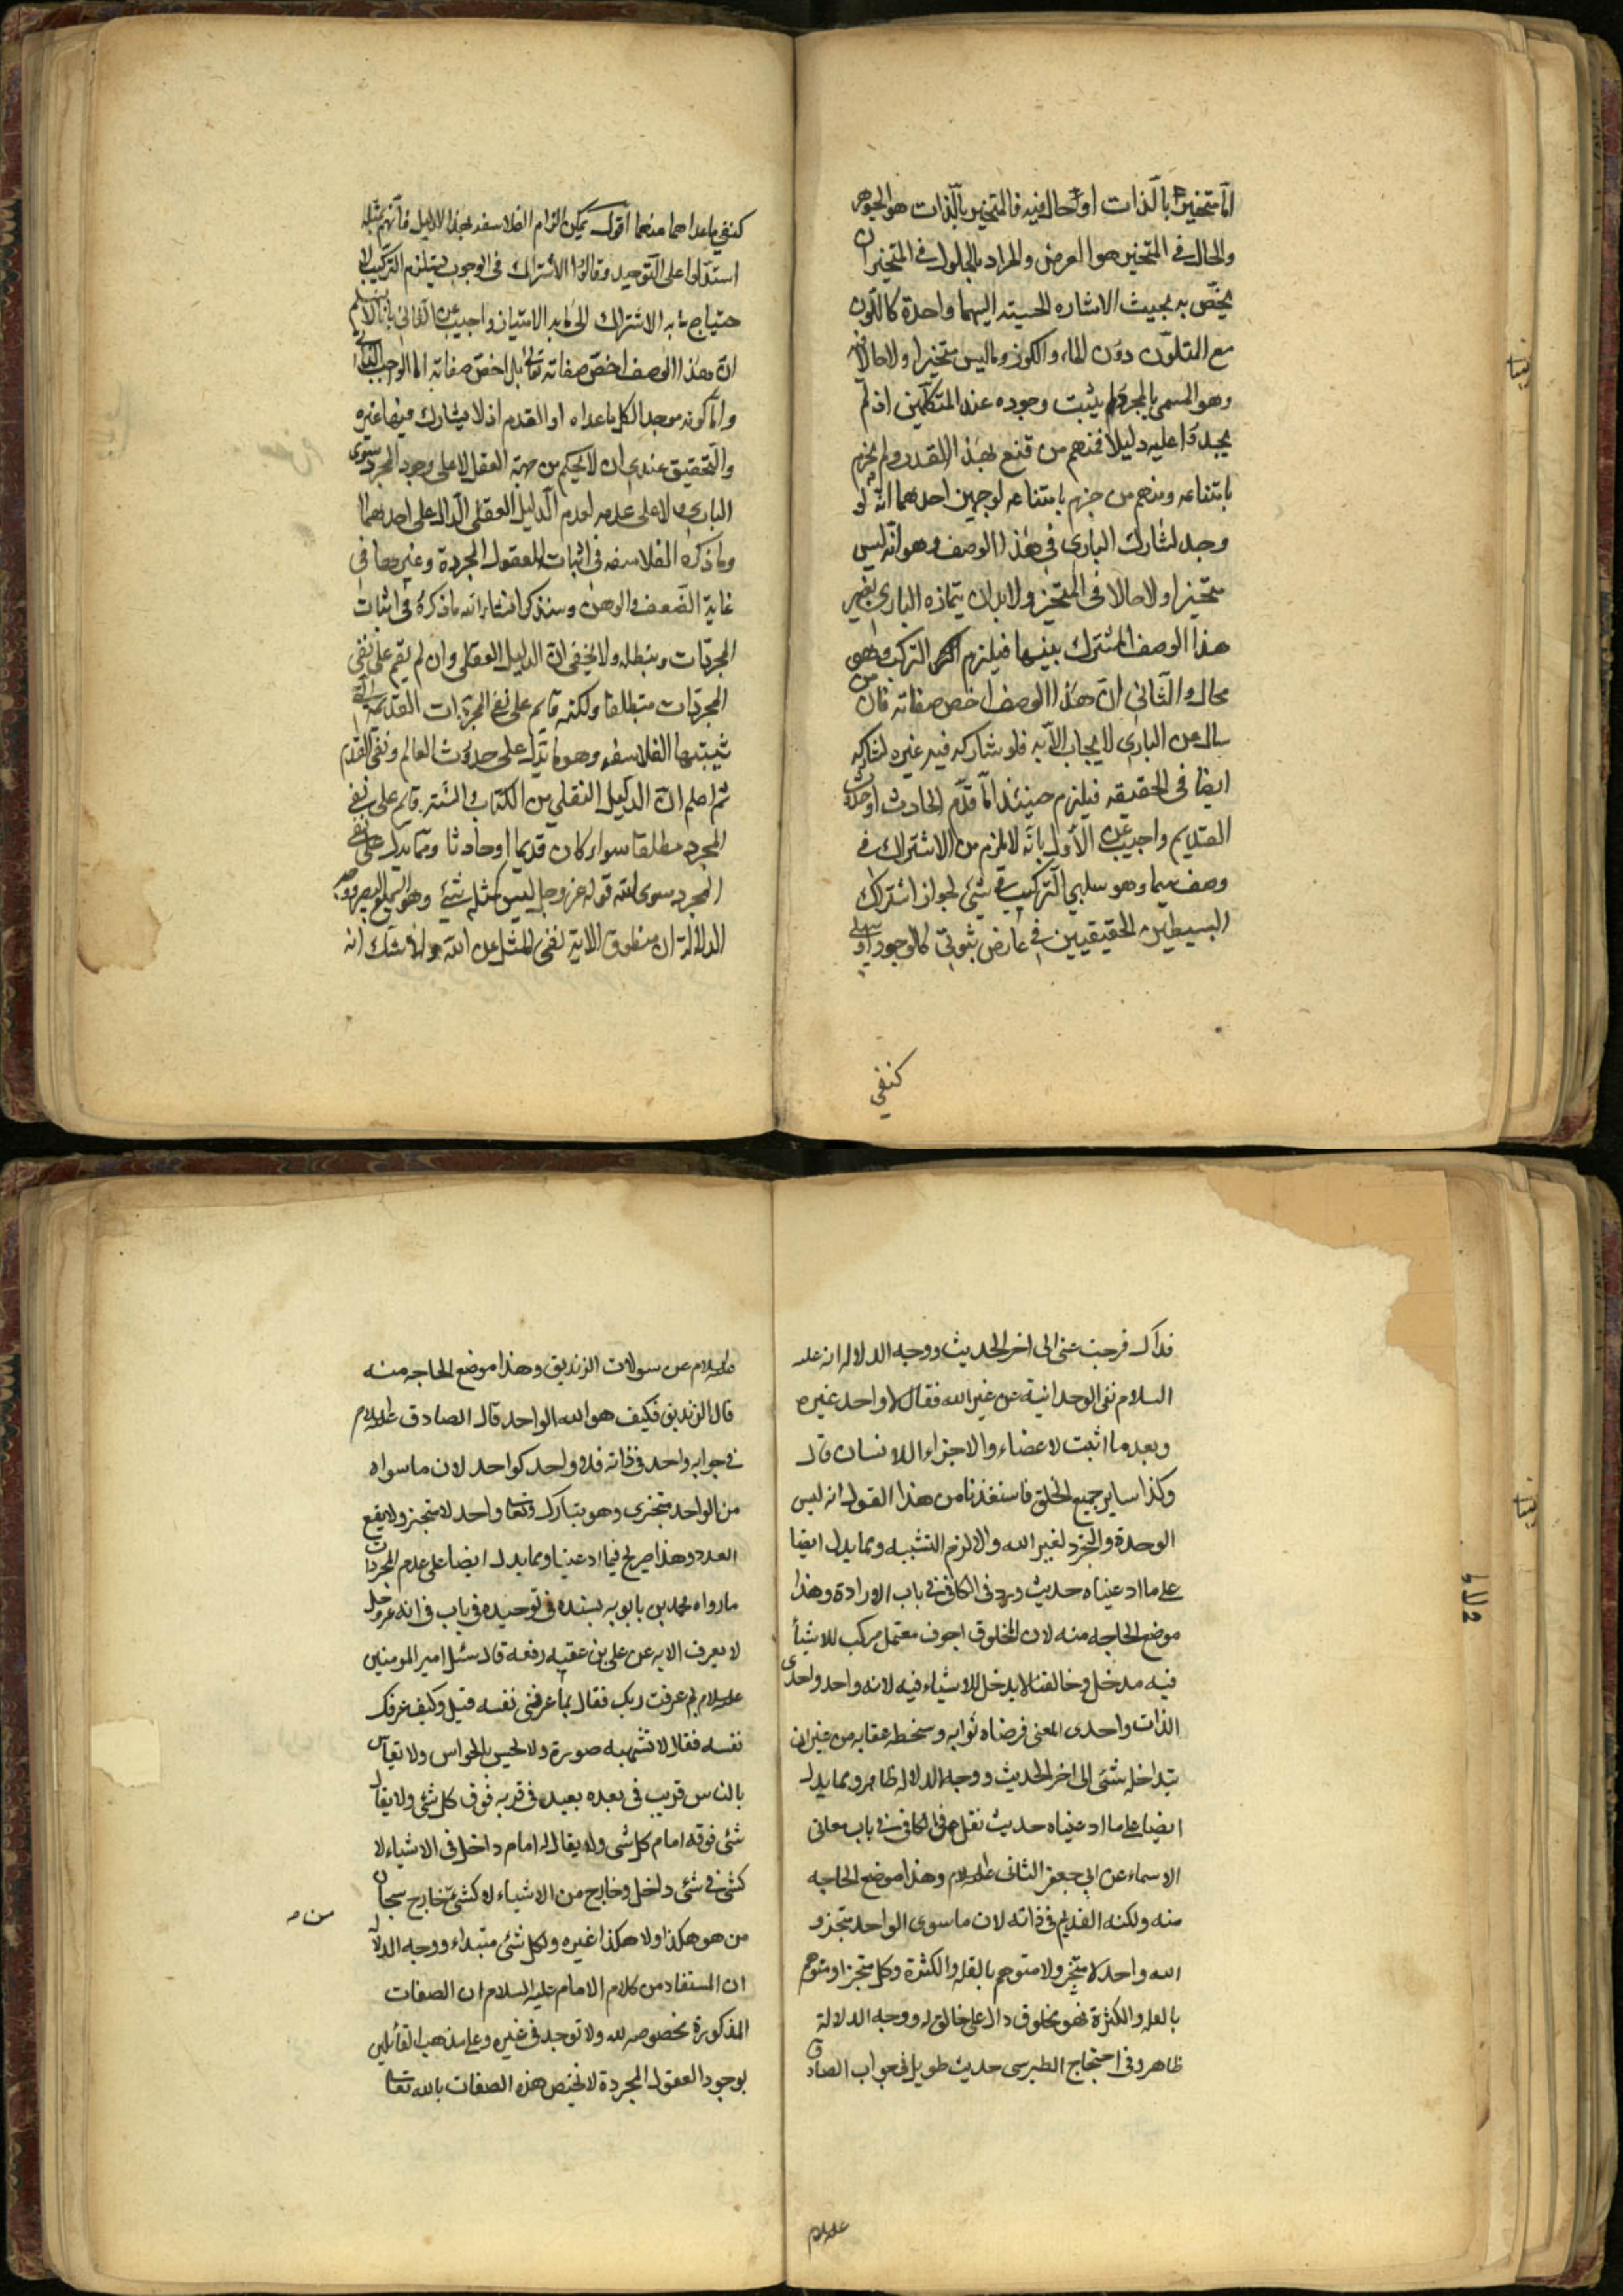 اما متحيز بالذات او حال فيه فالمتحيز بالذات هو الجوهر
والحال في المتحيز هو العرض والمراد بالحلول في المتحيز ان
يختص به بحيث الاشاره الحسيته اليهما واحدة كاللون
مع المتلون دون الماء والكوز وماليس متحيزا ولا حالا فيه
وهو المسمى بالمجرد لم يثبت وجوده عند المتكلمين اذ لم
يجدوا عليه دليلا فمنهم من قنع بهذا القدر ولم يجزم
بامتناعه ومنهم من جزم بامتناعه لوجهين احدهما انه لو
وجد لشارك البارى في هذا الوصف وهو انه ليس
متحيزا ولا حالا في المتحيز ولا بد ان يمتازه البارى بغير
هذا الوصف المشترك بينهما فيلزم التركب وهو
محال والثاني ان هذا الوصف اخص صفاته فان من
سال عن البارى لا يجاب الا به فلو شاركه فيه غيره لشاركه
ايضا في الحقيقه فيلزم حينئذ اما قدم الحادث او حدوث
القديم واجيب عن الأول بانه لا يلزم من الاشتراك في
وصف سيما وهو سلبي التركيب في شئ لجواز اشتراك
البسيطين الحقيقيين في عارض ثبوتي كالوجود او سلبي
كنفي
كنفي ماعداهما عنهما اقول يمكن الزام الفلاسفه بهذا الدليل فانهم بمثله
استدلوا على التوحيد وقالوا الاشتراك في الوجوب يستلزم التركيب لا
حتياج ما به الاشتراك الى ما به الامتياز واجيب عن الثاني بانا لا نسلم
ان هذا الوصف اخص صفاته تعالى بل اخص صفاته اما الوجوب الذاتي
واما كونه موجد الكل ماعداه او القدم اذ لا يشارك فيها غيره
والتحقيق عندى ان لا يحكم من جهة العقل لا على وجود المجرد سوى
البارى ولا على عدمه لعدم الدليل العقلى الدال على احدهما
وما ذكره الفلاسفه في اثبات العقول المجردة وغيرها في
غاية الضعف والوهن وسنذكر انشاء الله ما ذكره في اثبات
المجردات ونبطله ولا يخفى ان الدليل العقلى وان لم يقم على نفى
المجردات مطلقا ولكنه قائم على نفى المجردات القديمه التى
يثبتها الفلاسفه وهو ما يدل على حدوث العالم ونفى القدم
ثم اعلم ان الدليل النقلي من الكتاب والسنة قائم على نفى
المجرد مطلقا سواء كان قديما او حادثا ومما يدل على نفى
المجرد سوى الله قوله عز وجل ليس كمثله شئ وهو السميع البصير ووجه
الدلالة ان منطوق الاية نفى المثل عن الله ولا شك انه
فداك فرجت عنى الى اخر الحديث ووجه الدلاله انه عليه
السلام نفى الوحدانية عن غير الله فقال لا واحد غيره
وبعد ما اثبت لاعضاء والاجزاء للانسان قال
وكذا ساير جميع الخلق فاستفدنا من هذا القول انه ليس
الوحدة والتجرد لغير الله والا لزم التشبيه ومما يدل ايضا
على ما ادعيناه حديث ورد في الكافي في باب الارادة وهذا
موضع الحاجه منه لان المخلوق اجوف معتمل مركب للاشياء
فيه مدخل وخالقنا لا يدخل للاشياء فيه لانه واحد واحدى
الذات واحدى المعنى فرضاه ثوابه وسخطه عقابه من غير ان
يتداخله شئ الى اخر الحديث ووجه الدلاله ظاهر ومما يدل
ايضا على ما ادعيناه حديث نقل في الكافي في باب معانى
الاسماء عن ابي جعفر الثانى عليه السلام وهذا موضع الحاجه
منه ولكنه القديم في ذاته لان ما سوى الواحد متجزو
الله واحد لا متجز ولا متوهم بالقله والكثرة وكل متجز او متوهم
بالقله والكثرة فهو مخلوق دال على خالق له ووجه الدلالة
ظاهر وفي احتجاج الطبرسى حديث طويل في جواب الصادق
عليه السلام
عليه السلام عن سولات الزنديق وهذا موضع الحاجه منه
قال الزنديق فكيف هو الله الواحد قال الصادق عليه السلام
في جوابه واحد في ذاته فلا واحد كواحد لان ما سواه
من الواحد متجزى وهو تبارك وتعالى واحد لا متجز ولا يقع
العدد وهذا صريح فيما ادعينا ومما يدل ايضا على عدم المجردات
ما رواه محمد بن بابويه بسنده في توحيده في باب في انه عز وجل
لا يعرف الا به عن على بن عقبه رفعه قال سئل امير المومنين
عليه السلام بم عرفت ربك فقال بما عرفنى نفسه قيل وكيف عرفك
نفسه فقال لا تشبهه صورة ولا يحس بالحواس ولا يقاس
بالناس قريب في بعده بعيد في قربه فوق كل شئ ولا يقال
شئ فوقه امام كل شئ ولا يقال له امام داخل في الاشياء لا
كشئ في شئ داخل وخارج من الاشياء لا كشئ خارج سبحان
من هو هكذا ولا هكذا غيره ولكل شئ مبتداء ووجه الدلاله
ان المستفاد من كلام الامام عليه السلام ان الصفات
المذكورة مخصوصه لله ولا توجد في غيره وعلى مذهب القائلين
بوجود العقول المجردة لا تختص هذه الصفات بالله تعالى